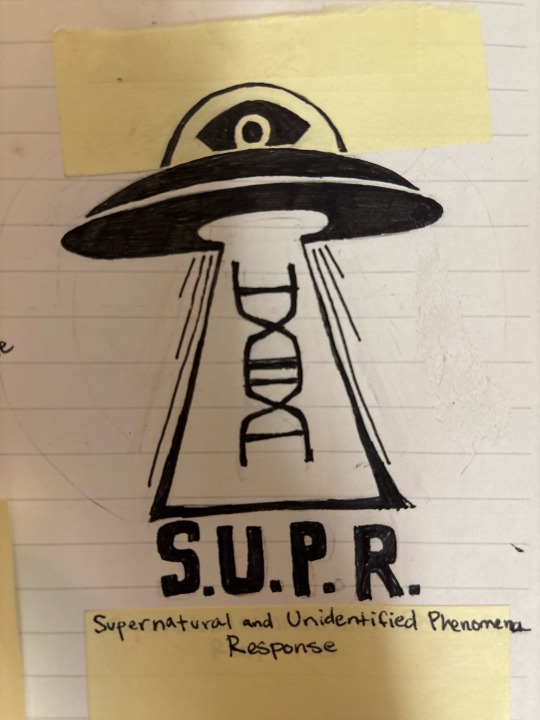 e
S.U.P.R.
Supernatural and Unidentified Phenomena
Response